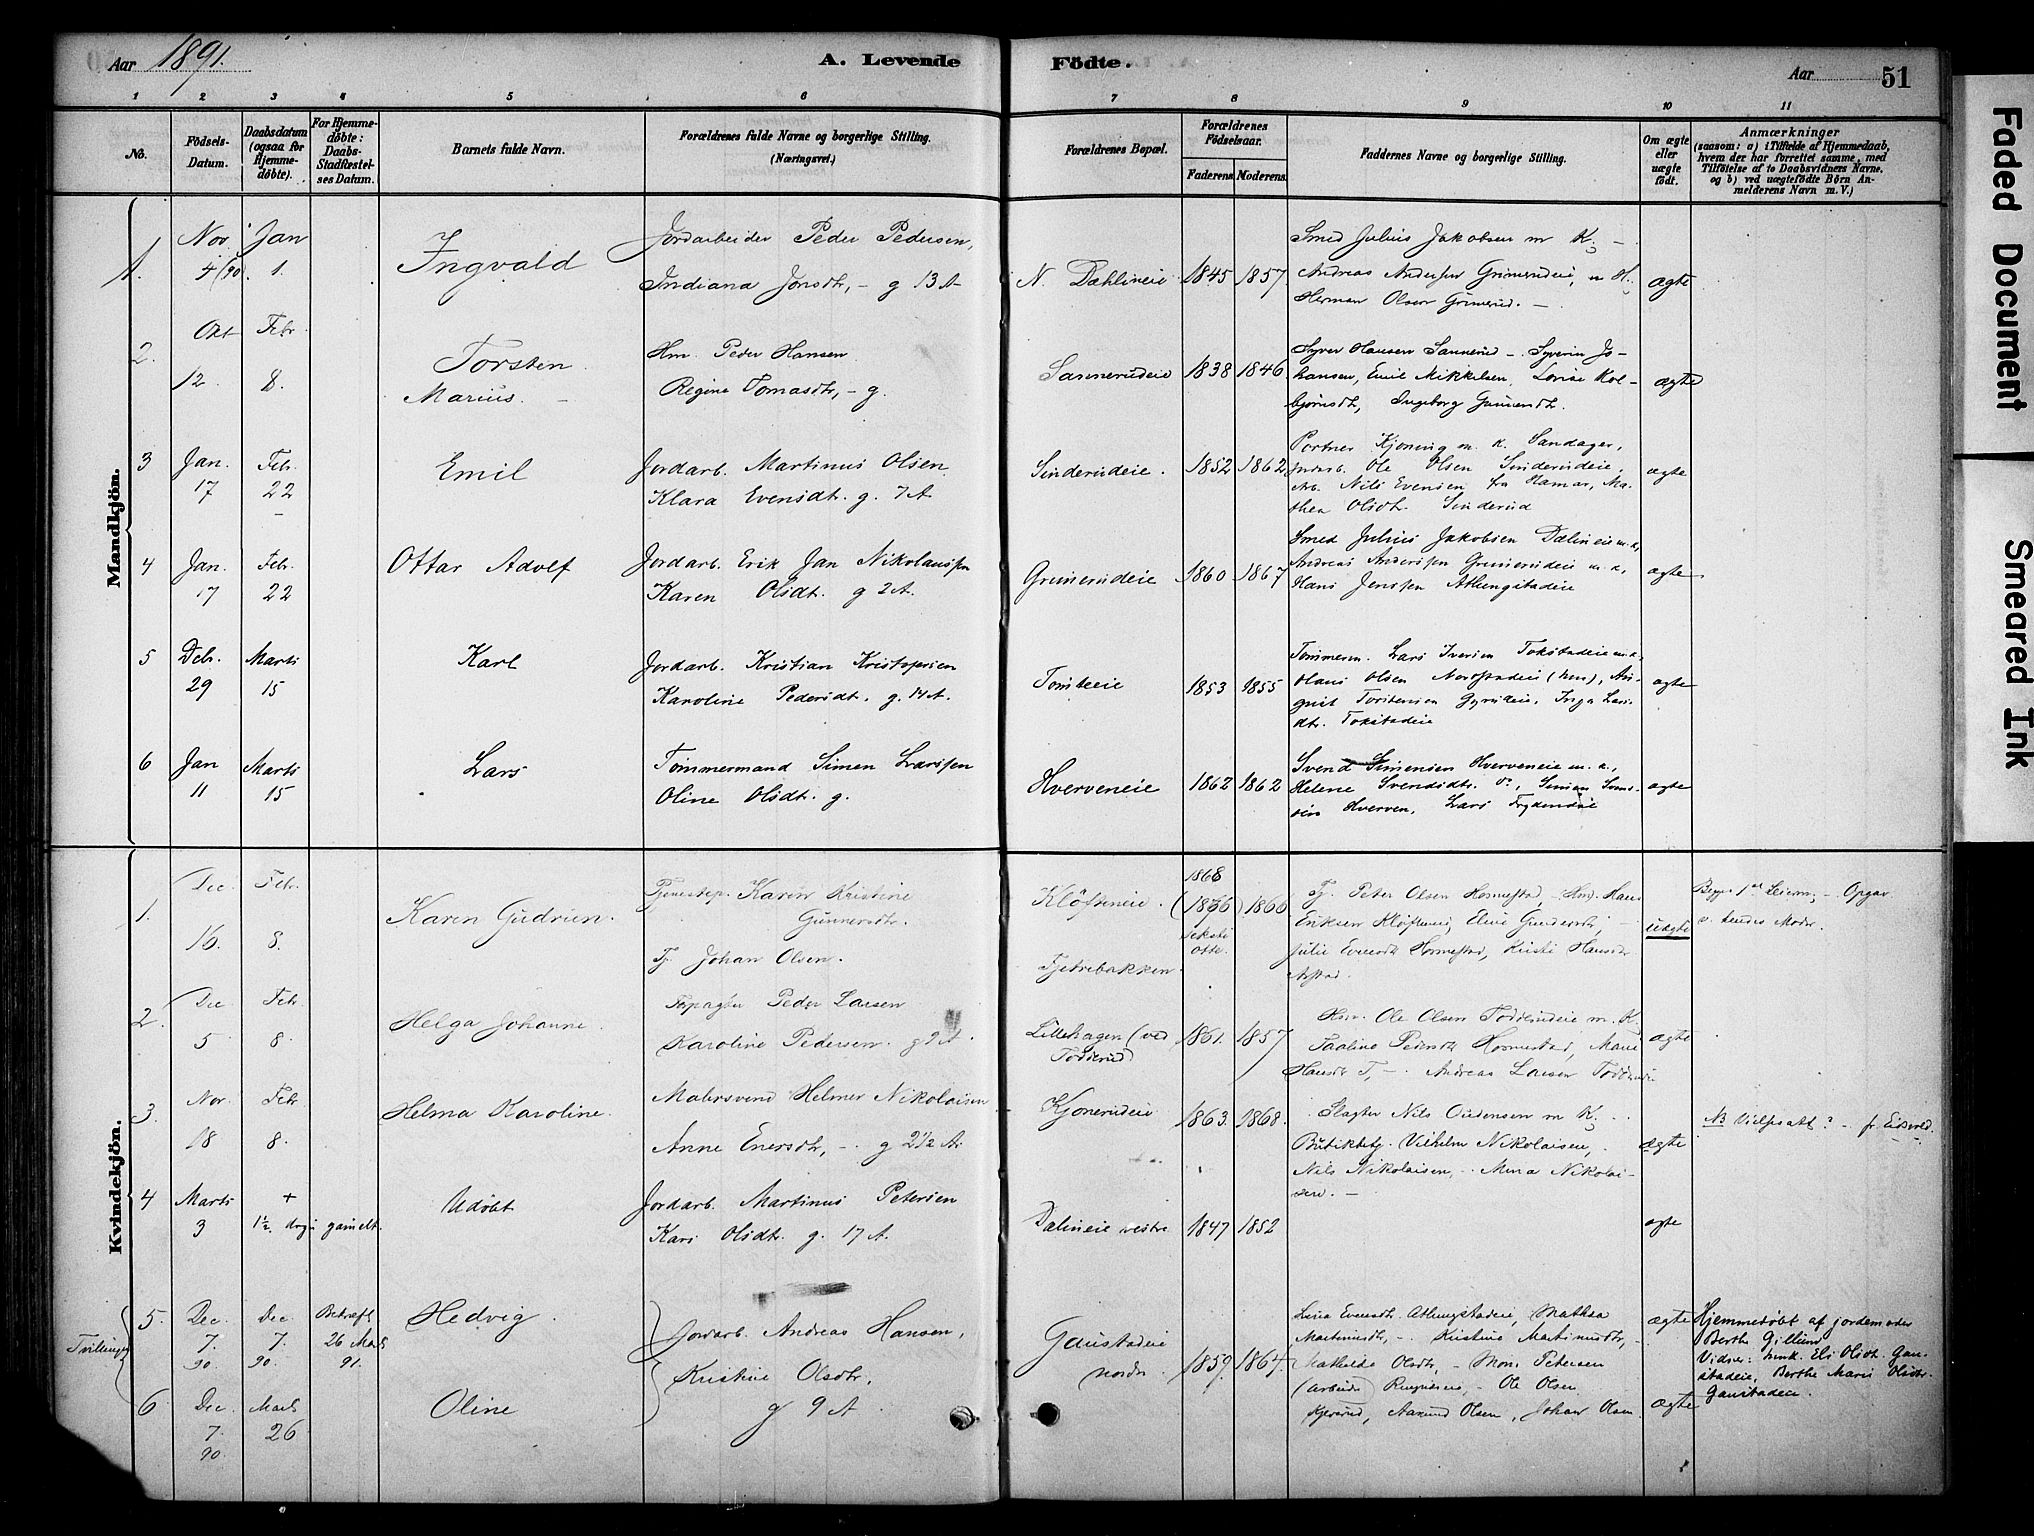 Aar 1891.
A. Levende
Födte.
Aar 51
1 2 3 4 5 6 7 8 9 10 11
No.
Födsels-Datum.
Daabsdatum (ogsaa for Hjemme-döbte).
For Hjemme-döbte: Daabs-Stadfæstel-ses Datum.
Barnets fulde Navn.
Forældrenes fulde Navne og borgerlige Stilling. (Næringsvei.)
Forældrenes Bopæl.
Forældrenes Födselsaar.
Faderens. Moderens.
Faddernes Navne og borgerlige Stilling.
Om ægte eller uægte födt.
Anmærkninger
(saasom: a) i Tilfælde af Hjemmedaab, hvem der har forrettet samme, med Tilföielse af to Daabsvidners Navne. og b) ved uægtefödte Börn Anmelderens Navn m. V.)
Mandkjön.
1. Nov 4 (90). Jan 1.
Ingvald
Jordarbeider Peder Pedersen,
Indiana Jonsdtr, - g 13 A
N. Dæhlineie 1845 1857.
Smed Julius Jakobsen m K; -
Andreas Andersen Grimerudeie, m H.
Herman Olsen Grimerud. -
ægte
2. Okt 12. Febr. 8.
Torsten
Marius. -
Hm. Peder Hansen
Regine Tomasdtr, - g.
Sannerudeie 1838 1846.
Syver Hansen Sannerud - Syverin Jo-
hansen, Emil Mikkelsen, Lovise Kol-
bjørnsdtr, Ingeborg Gunnersdtr.
ægte
3 Jan. 17 Febr. 22
Emil
Jordarb. Martinus Olsen
Klara Evensdtr. g. 7 A
Sinderudeie. 1852 1862
Portner Kjoning m. k. Sandager,
Jordarb. Ole Olsen Sinderudeie,
Arb. Nils Evensen fra Hamar, Ma-
thea Olsdtr. Sinderud
ægte
4 Jan. 17 Febr. 22
Ottar Adolf
Jordarb. Erik Jan Nikolaussen
Karen Olsdtr. g 2 A.
Grimerudeie 1860 1867
Smed Julius Jakobsen Dælineie m. k,
Andreas Anderssen Grimerudeie m. k,
Hans Jenssen Atlungstadeie
ægte
5 Debr. 29 Marts 15
Karl
Jordarb. Kristian Kristofersen
Karoline Pedersdt. g. 14 A.
Tomteeie 1853 1855
Tømmerm. Lars Iversen Tokstadeie m. k,
Olaus Olsen Nordstadeie (hus), Au-
gust Torstensen Gyrudeie, Inga Lars-
dtr. Tokstadeie
ægte
6 Jan 11 Marts 15
Lars
Tømmermand Simen Larssen
Oline Olsdtr. g.
Hverveneie 1862 1862
Svend Simensen Hverveneie m. k.,
Helene Svendsdtr. do, Simen Svend-
sen Hverven, Lars Frydendeie
ægte
Kvindekjön.
1. Dec. 16. Febr. 8.
Karen Gudrun.
Tjenestep. Karen Kristine
Gunnersdtr.
Tj. Johan Olsen.
Kløftineie.
Fjetrebakken.
1868
(1866) 1866
seksti
otte.
Tj. Peter Olsen Hommestad, Hm. Hans
Eriksen Kløftineie, Eline Gundersdtr, -
Julie Evensdtr Hommestad, Kristi Hansdtr
uægte
Begges 1ste Leierm; - Opgav
v. hendes Moder.
2. Dec 5 Febr 8.
Helga Johanne.
Forpagter Peder Larsen
Karoline Pedersen. g 9 A.
Lillehagen (ved
Tødderud) 1861. 1857
Hm. Ole Olsen Tødderudeie m. K.
Paaline Pedersdtr Hommestad, Marie
Hansdtr T, -. Andreas Larsen Tødderudeie
ægte
3. Nov. 18 Febr 8.
Helma Karoline.
Malersvend Helmer Nikolaisen
Anne Enersdtr, -. g 2½ A.
Kjonerudeie 1863. 1868.
Slagter Nils Audensen m K;
Butikbetj. Vilhelm Nikolaisen,
Nils Nikolaisen, -. Mina Nikolai-
sen. -
ægte
NB Vielsesatt? - fr. Eidsvold.
4 Marts 3 + 1½ dage gamelt.
Udøbt
Jordarb. Martinus Petersen
Kari Olsdtr. g. 17 A.
Dælineie vestre 1847 1852
ægte
Tvillinger
5. Dec. 7. 90. Dec. 7. 90. Bekræft. 26 Marts 91.
Hedvig.
6 Dec. 7. 90. Marts 26
Oline
Jordarb. Andreas Hansen,
Kristine Olsdtr,
g 9 A
Gaustadeie
nordre 1859. 1864.
Lina Evensdtr Atlungstadeie, Mathea
Martinusdtr, - Kristine Martinusdtr, -
Mathilde Olsdtr, - Mons Petersen
(Arbeider) -. Ole Olsen
Kjeverud, Aamund Olsen, Johan Olsen
ægte
ægte
Hjemmedøbt af jordemoder
Berthe Gillund
Vidner: Enk. Eli Olsdtr. Gau-
stadeie, Berthe Marie Olsdtr.
Gaustadeie.
Faded Document
Smeared Ink